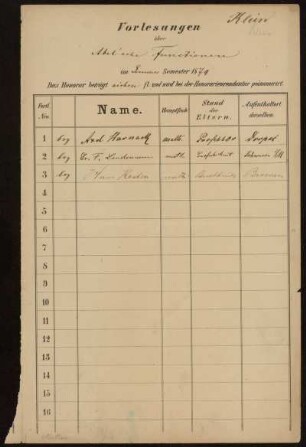 Klein
Vorlesungen
über
Abel'sche Functionen
im Sommer Semester 1874
Das Honorar beträgt sieben fl. und wird bei der Honorarienrendantur pränumerirt.
Fortl. No. Name. Hauptfach Stand der Eltern. Aufenthaltsort derselben.
1 bez Axel Harnack math. Professor Dorpat
2 bez Dr. F. Lindemann math.
3 bez math. Bremen
4
5
6
7
8
9
10
11
12
13
14
15
16